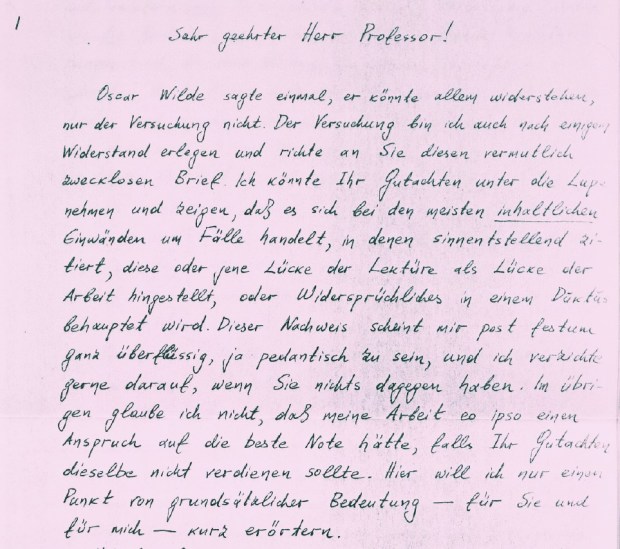 1
Sehr geehrter Herr Professor!
Oscar Wilde sagte einmal, er könnte allem widerstehen,
nur der Versuchung nicht. Der Versuchung bin ich auch nach einigem
Widerstand erlegen und richte an Sie diesen vermutlich
zwecklosen Brief. Ich könnte Ihr Gutachten unter die Lupe
nehmen und zeigen, daß es sich bei den meisten inhaltlichen
Einwänden um Fälle handelt, in denen sinnentstellend zi-
tiert, diese oder jene Lücke der Lektüre als Lücke der
Arbeit hingestellt, oder Widersprüchliches in einem Duktus
behauptet wird. Dieser Nachweis scheint mir post festum
ganz überflüssig, ja pedantisch zu sein, und ich verzichte
gerne darauf, wenn Sie nichts dagegen haben. Im übri-
gen glaube ich nicht, daß meine Arbeit eo ipso einen
Anspruch auf die beste Note hätte, falls Ihr Gutachten
dieselbe nicht verdienen sollte. Hier will ich nur einen
Punkt von grundsätzlicher Bedeutung — für Sie und
für mich — kurz erörtern.